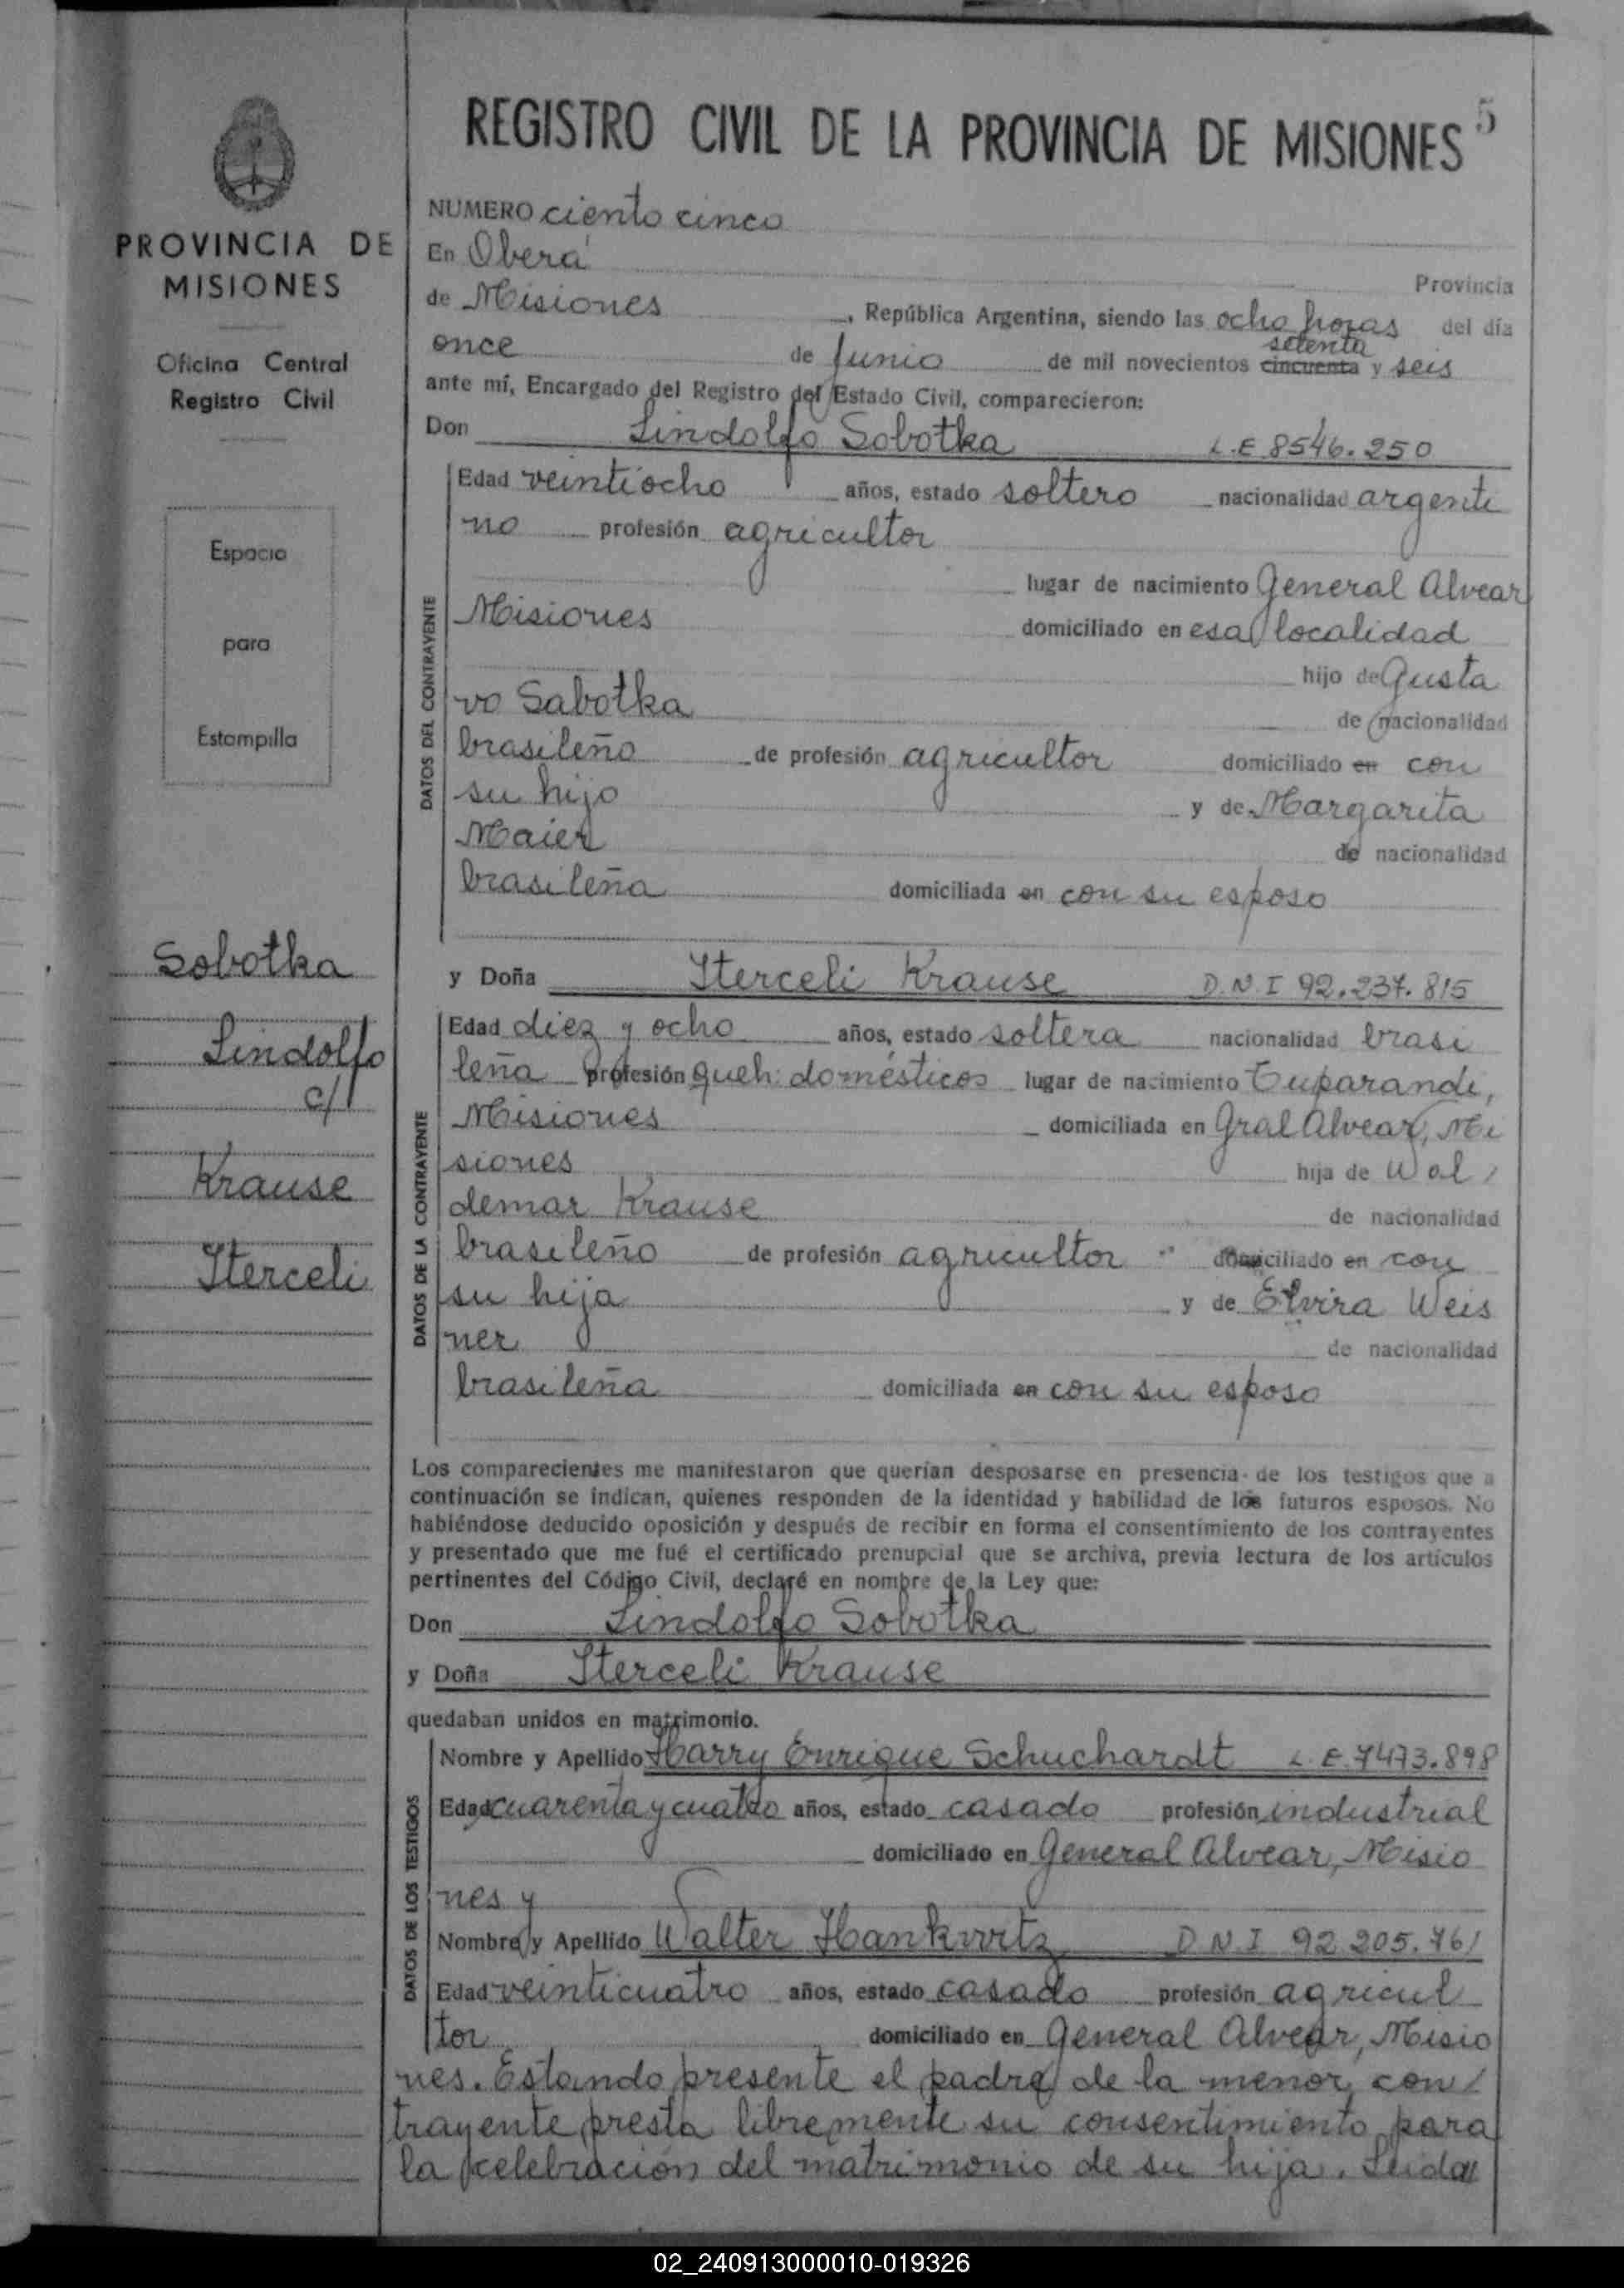 REGISTRO CIVIL DE LA PROVINCIA DE MISIONES 5
PROVINCIA DE
MISIONES
Oficina Central
Registro Civil
Espacio
para
Estampilla
Sobotka
Lindolfo
c/
Krause
Iterceli
NUMERO ciento cinco
En Oberá Provincia
de Misiones, República Argentina, siendo las ocho horas del día
setenta
once de Junio de mil novecientos cincuenta y seis
ante mí, Encargado del Registro del Estado Civil, comparecieron:
Don Lindolfo Sobotka L.E 8546.250
DATOS DEL CONTRAYENTE
Edad veintiocho años, estado soltero nacionalidad argenti
no profesión agricultor
lugar de nacimiento General Alvear
Misiones domiciliado en esa localidad
hijo de Gusta
vo Sabotka de nacionalidad
brasileño de profesión agricultor domiciliado en con
su hijo y de Margarita
Maier de nacionalidad
brasileña domiciliada en con su esposo
y Doña Iterceli Krause D.N.I 92.237.815
DATOS DE LA CONTRAYENTE
Edad diez y ocho años, estado soltera nacionalidad brasi
leña profesión queh. domésticos lugar de nacimiento Tuparandi,
Misiones domiciliada en Gral Alvear, Mi
siones hija de Wal/
demar Krause de nacionalidad
brasileño de profesión agricultor domiciliado en con
su hija y de Elvira Weis
ner de nacionalidad
brasileña domiciliada en con su esposo
Los comparecientes me manifestaron que querían desposarse en presencia de los testigos que a
continuación se indican, quienes responden de la identidad y habilidad de los futuros esposos. No
habiéndose deducido oposición y después de recibir en forma el consentimiento de los contrayentes
y presentado que me fué el certificado prenupcial que se archiva, previa lectura de los artículos
pertinentes del Código Civil, declaré en nombre de la Ley que:
Don Lindolfo Sobotka
y Doña Iterceli Krause
quedaban unidos en matrimonio.
DATOS DE LOS TESTIGOS
Nombre y Apellido Harry Enrique Schuchardt L.E. 7473.898
Edad cuarenta y cuatro años, estado casado profesión industrial
domiciliado en General Alvear, Misio
nes y
Nombre y Apellido Walter Hankwitz D.N.I 92 205.761
Edad veinticuatro años, estado casado profesión agricul
tor domiciliado en General Alvear, Misio
nes. Estando presente el padre de la menor con/
trayente presta libremente su consentimiento para
la celebración del matrimonio de su hija. Leida
02_240913000010-019326